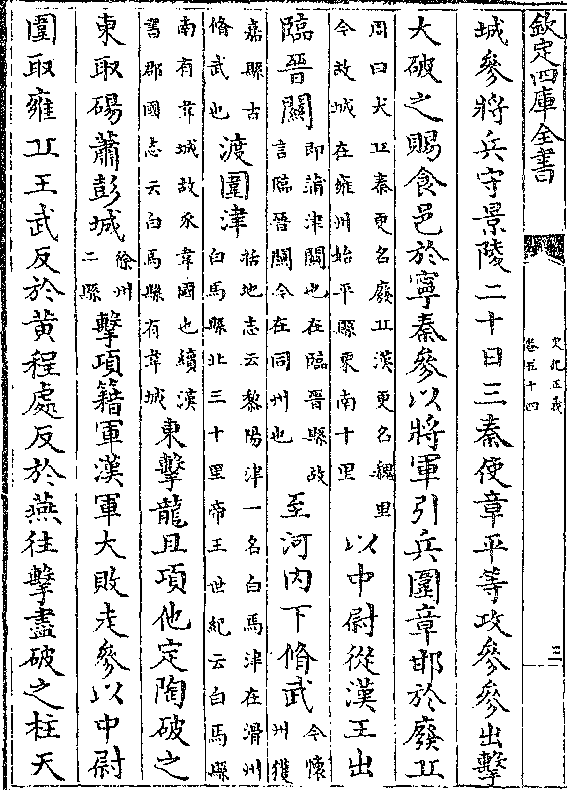 欽定四庫全書
史記正義
卷五十四
三
城參將兵守景陵二十日三秦使章平等攻參參出擊
大破之賜食邑於寧秦參以將軍引兵圍章邯於廢丘
周曰犬丘秦更名廢丘漢更名槐里
今故城在雍州始平縣東南十里
以中尉從漢王出
臨晉關
即蒲津關也在臨晉縣故
言臨晉關今在同州也
至河内下脩武
今懷
州獲
嘉縣古
脩武也
渡圍津
括地志云黎陽津一名白馬津在滑州
白馬縣北三十里帝王世紀云白馬縣
南有韋城故豕韋國也續漢
書郡國志云白馬縣有韋城
東擊龍且項他定陶破之
東取碭蕭彭城
徐州
二縣
擊項籍軍漢軍大敗走參以中尉
圍取雍丘王武反於黃程處反於燕往擊盡破之柱天